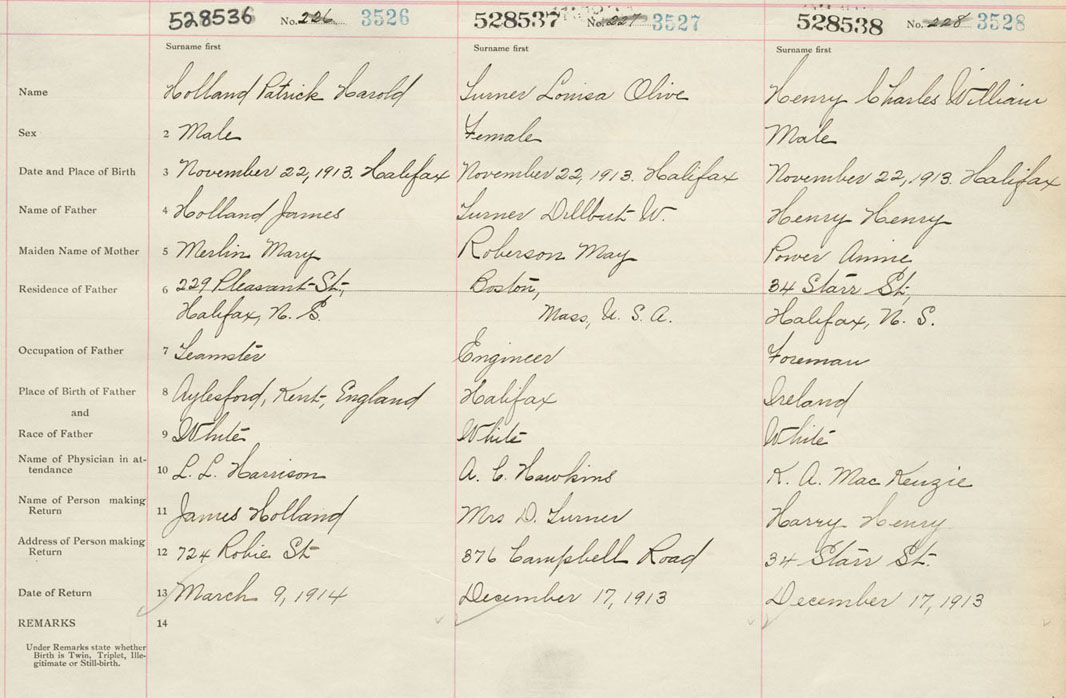 528536 No. 226 3526 528537 No. 227 3527 528538 No. 228 3528
Surname first Surname first Surname first
Name Holland Patrick Harold Turner Louisa Olive Henry Charles William
Sex 2 Male Female Male
Date and Place of Birth 3 November 22, 1913. Halifax November 22, 1913. Halifax November 22, 1913. Halifax
Name of Father 4 Holland James Turner Dillburt W. Henry Henry
Maiden Name of Mother 5 Merlin Mary Roberson May Power Annie
Residence of Father 6 229 Pleasant St., Boston, 34 Starr St.,
Halifax, N. S. Mass, U. S. A. Halifax, N. S.
Occupation of Father 7 Teamster Engineer Foreman
Place of Birth of Father 8 Aylesford, Kent, England Halifax Ireland
and
Race of Father 9 White White White
Name of Physician in at-
tendance 10 L. L. Harrison A. C. Hawkins K. A. MacKenzie
Name of Person making
Return 11 James Holland Mrs D. Turner Harry Henry
Address of Person making
Return 12 724 Robie St 876 Campbell Road 34 Starr St.
Date of Return 13 March 9, 1914 December 17, 1913 December 17, 1913
REMARKS 14
Under Remarks state whether
Birth is Twin, Triplet, Ille-
gitimate or Still-birth.